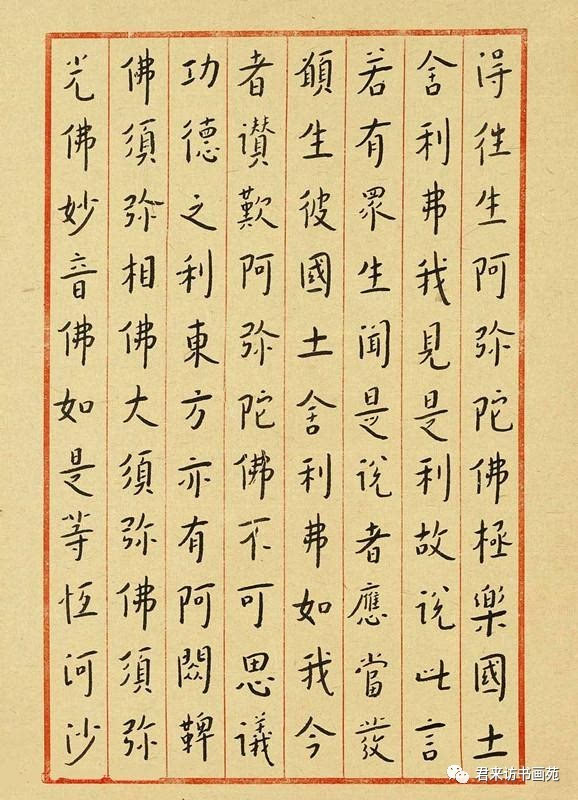 得往生阿弥陀佛極樂國土
舍利弗我見是利故説此言
若有眾生聞是説者應當發
願生彼國土舍利弗如我今
者讃歎阿弥陀佛不可思議
功德之利東方亦有阿閦鞞
佛須弥相佛大須弥佛須弥
光佛妙音佛如是等恆河沙
君来坊书画苑